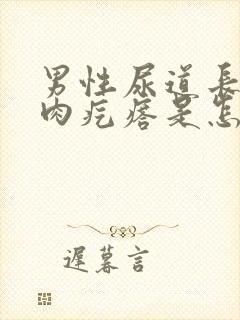 男性尿道長
肉疙瘩是怎
遲暮言